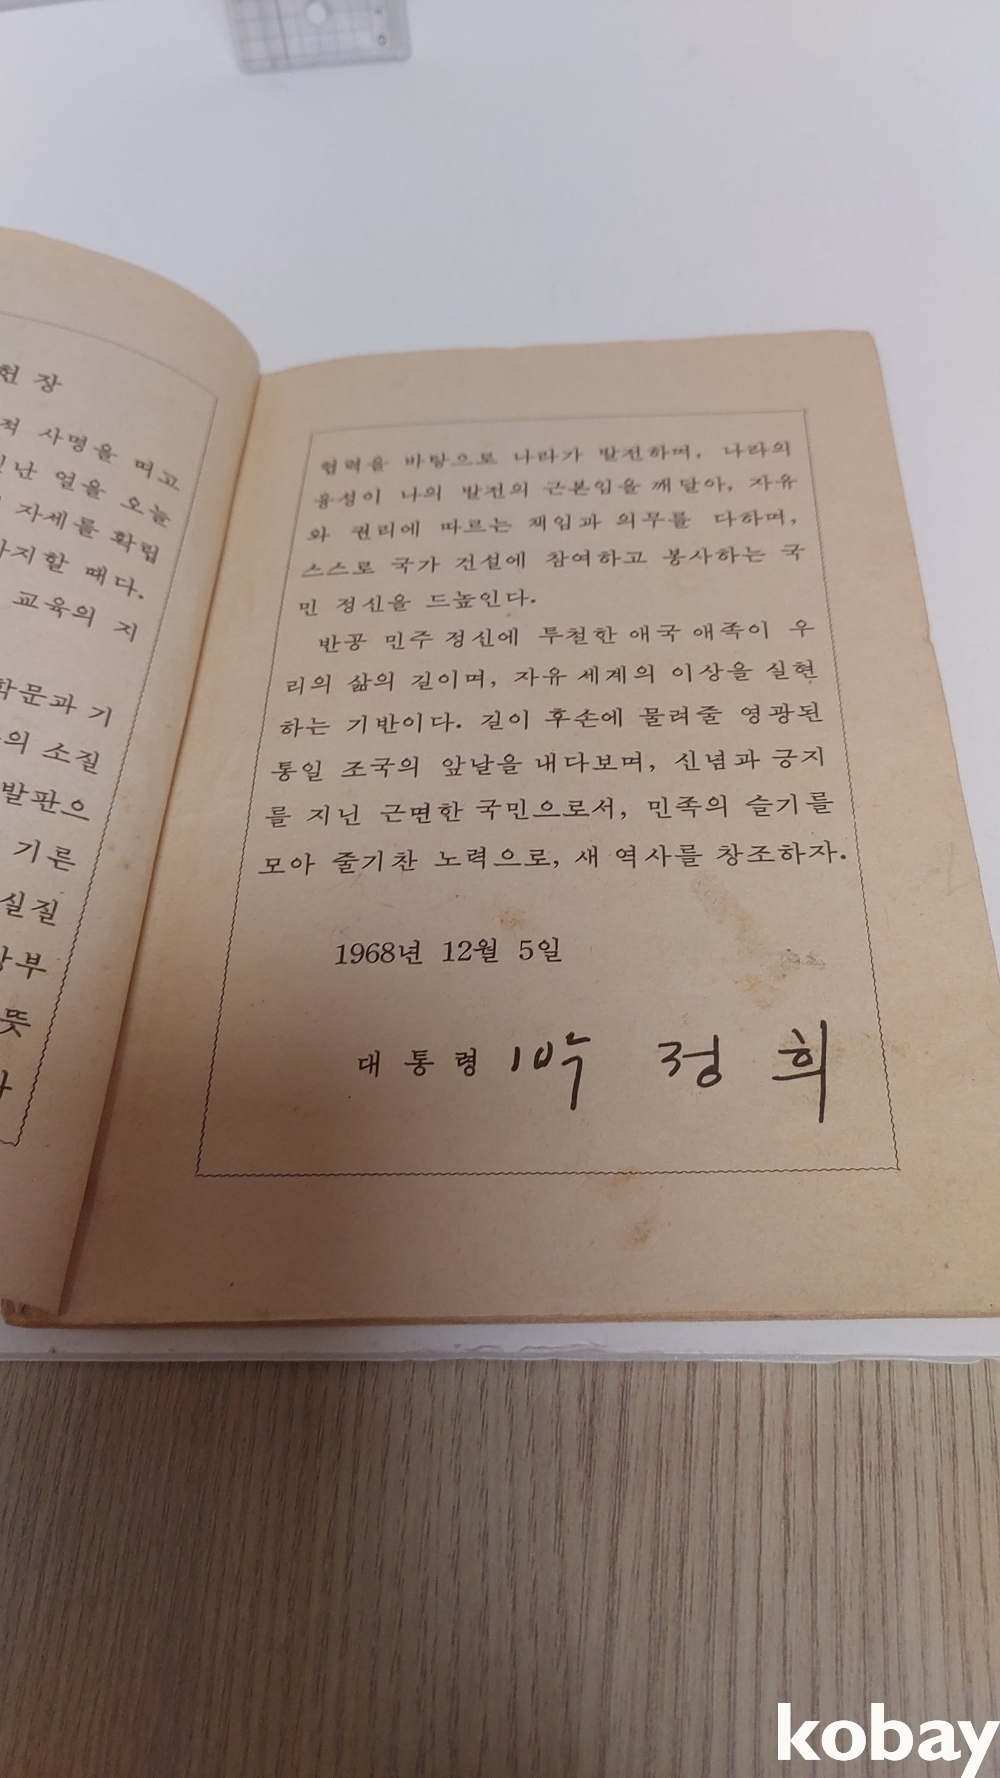 헌 장
적 사명을 띠고
난 얼을 오늘
자세를 확립
지할 때다.
교육의 지
학문과 기
의 소질
발판으
기른
실질
상부
뜻
협력을 바탕으로 나라가 발전하며, 나라의
융성이 나의 발전의 근본임을 깨달아, 자유
와 권리에 따르는 책임과 의무를 다하며,
스스로 국가 건설에 참여하고 봉사하는 국
민 정신을 드높인다.
반공 민주 정신에 투철한 애국 애족이 우
리의 삶의 길이며, 자유 세계의 이상을 실현
하는 기반이다. 길이 후손에 물려줄 영광된
통일 조국의 앞날을 내다보며, 신념과 긍지
를 지닌 근면한 국민으로서, 민족의 슬기를
모아 줄기찬 노력으로, 새 역사를 창조하자.
1968년 12월 5일
대 통 령 박 정 희
kobay